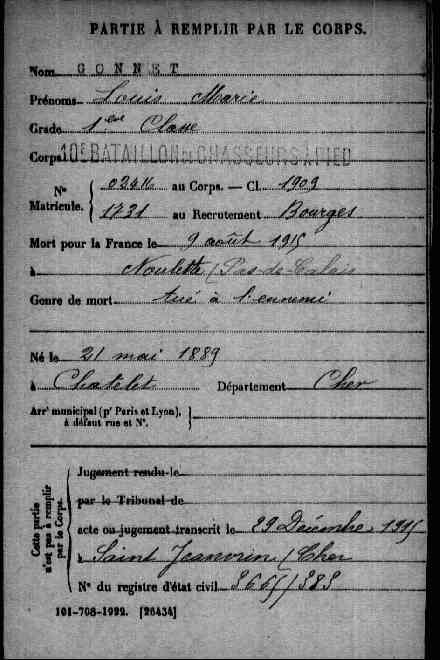 PARTIE À REMPLIR PAR LE CORPS.
Nom GONNET
Prénoms Louis Marie
Grade 1ère Classe
Corps 10E BATAILLON DE CHASSEURS À PIED
N° Matricule. { 02416 au Corps. — Cl. 1909
1731 au Recrutement Bourges
Mort pour la France le 9 août 1915
à Noulette (Pas-de-Calais
Genre de mort tué à l'ennemi
Né le 21 mai 1889
à Chatelet Département Cher
Arrt municipal (pr Paris et Lyon), à défaut rue et N°. }
Cette partie n'est pas à remplir par le Corps. {
Jugement rendu le
par le Tribunal de
acte ou jugement transcrit le 29 Décembre 1915
à Saint Jeanvrin (Cher
N° du registre d'état civil
101-708-1922. [26434]